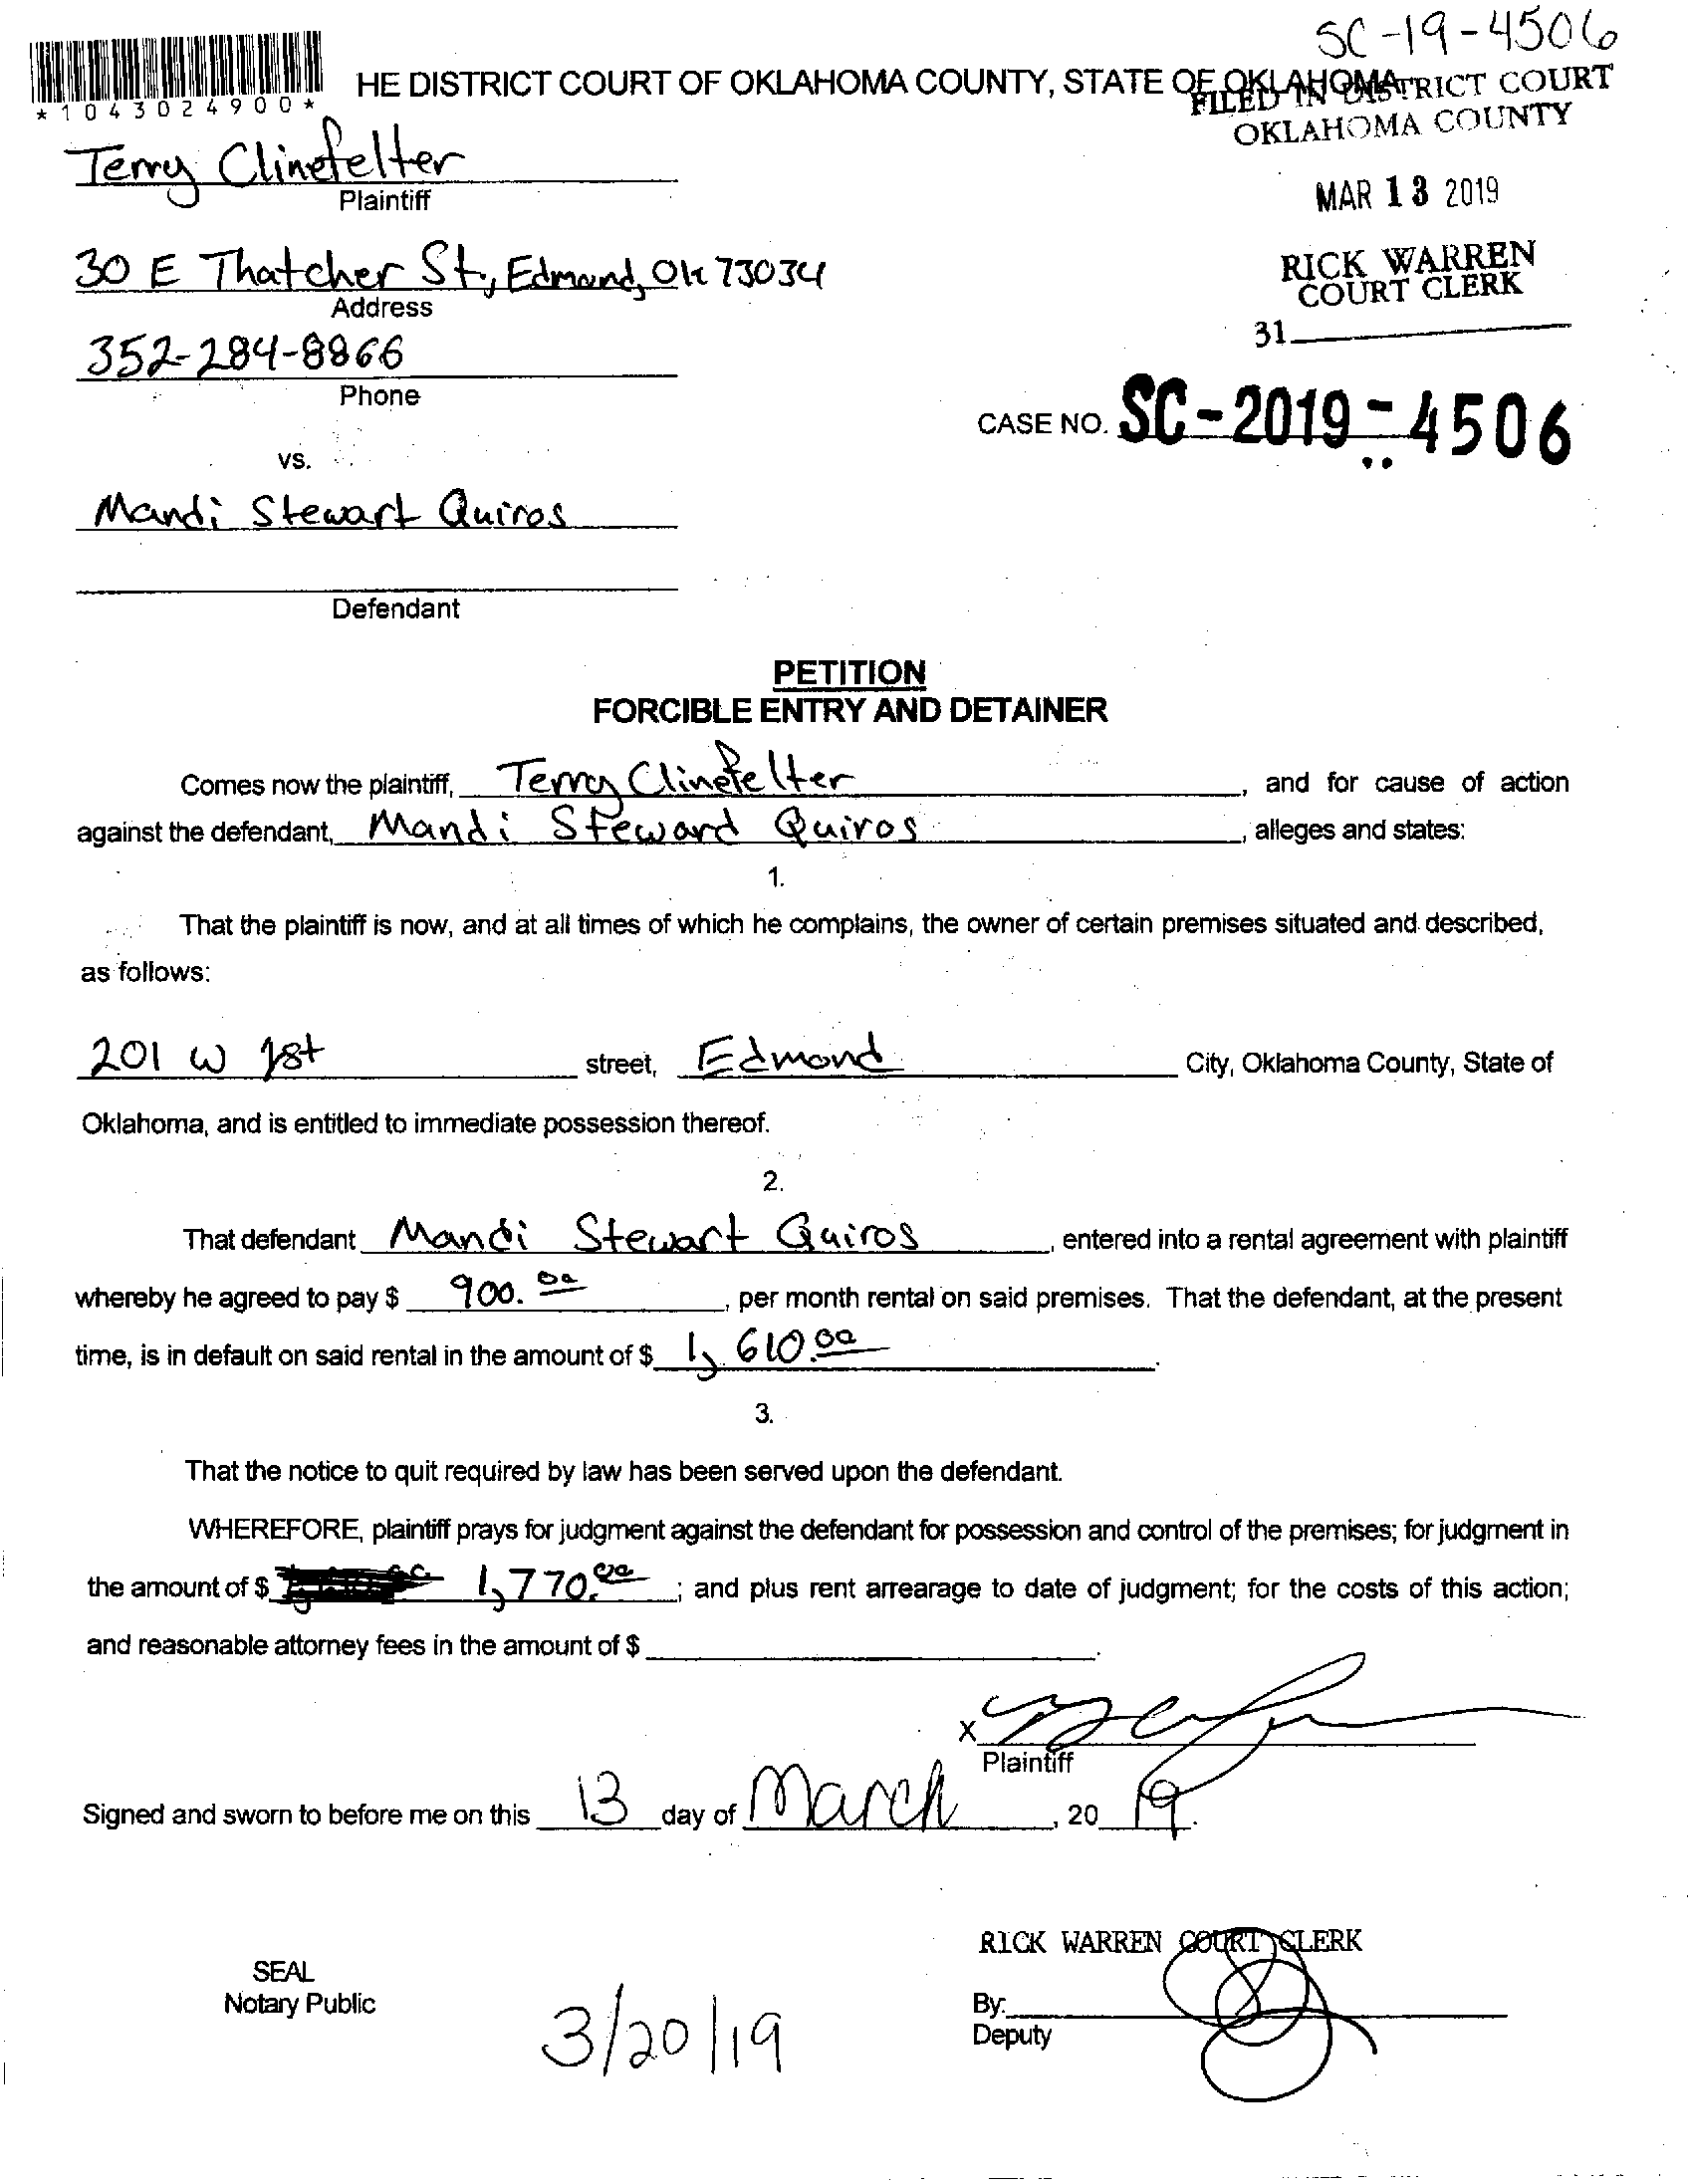 SC-19-4506
*1043024900*
HE DISTRICT COURT OF OKLAHOMA COUNTY, STATE OF OKLAHOMA
FILED IN DISTRICT COURT
OKLAHOMA COUNTY
Terry Clinefelter
Plaintiff
MAR 13 2019
30 E Thatcher St., Edmond, OK 73034
Address
RICK WARREN
COURT CLERK
31
352-284-8866
Phone
CASE NO. SC-2019-4506
vs.
Mandi Stewart Quiros
Defendant
PETITION
FORCIBLE ENTRY AND DETAINER
Comes now the plaintiff, Terry Clinefelter, and for cause of action
against the defendant, Mandi Steward Quiros, alleges and states:
1.
That the plaintiff is now, and at all times of which he complains, the owner of certain premises situated and described,
as follows:
201 W 1st street, Edmond City, Oklahoma County, State of
Oklahoma, and is entitled to immediate possession thereof.
2.
That defendant Mandi Stewart Quiros, entered into a rental agreement with plaintiff
whereby he agreed to pay $ 900.00, per month rental on said premises. That the defendant, at the present
time, is in default on said rental in the amount of $ 1,610.00.
3.
That the notice to quit required by law has been served upon the defendant.
WHEREFORE, plaintiff prays for judgment against the defendant for possession and control of the premises; for judgment in
the amount of $ 1,770.00; and plus rent arrearage to date of judgment; for the costs of this action;
and reasonable attorney fees in the amount of $ .
X
Plaintiff
Signed and sworn to before me on this 13 day of March, 2019.
RICK WARREN COURT CLERK
SEAL
Notary Public
By:
Deputy
3/20/19